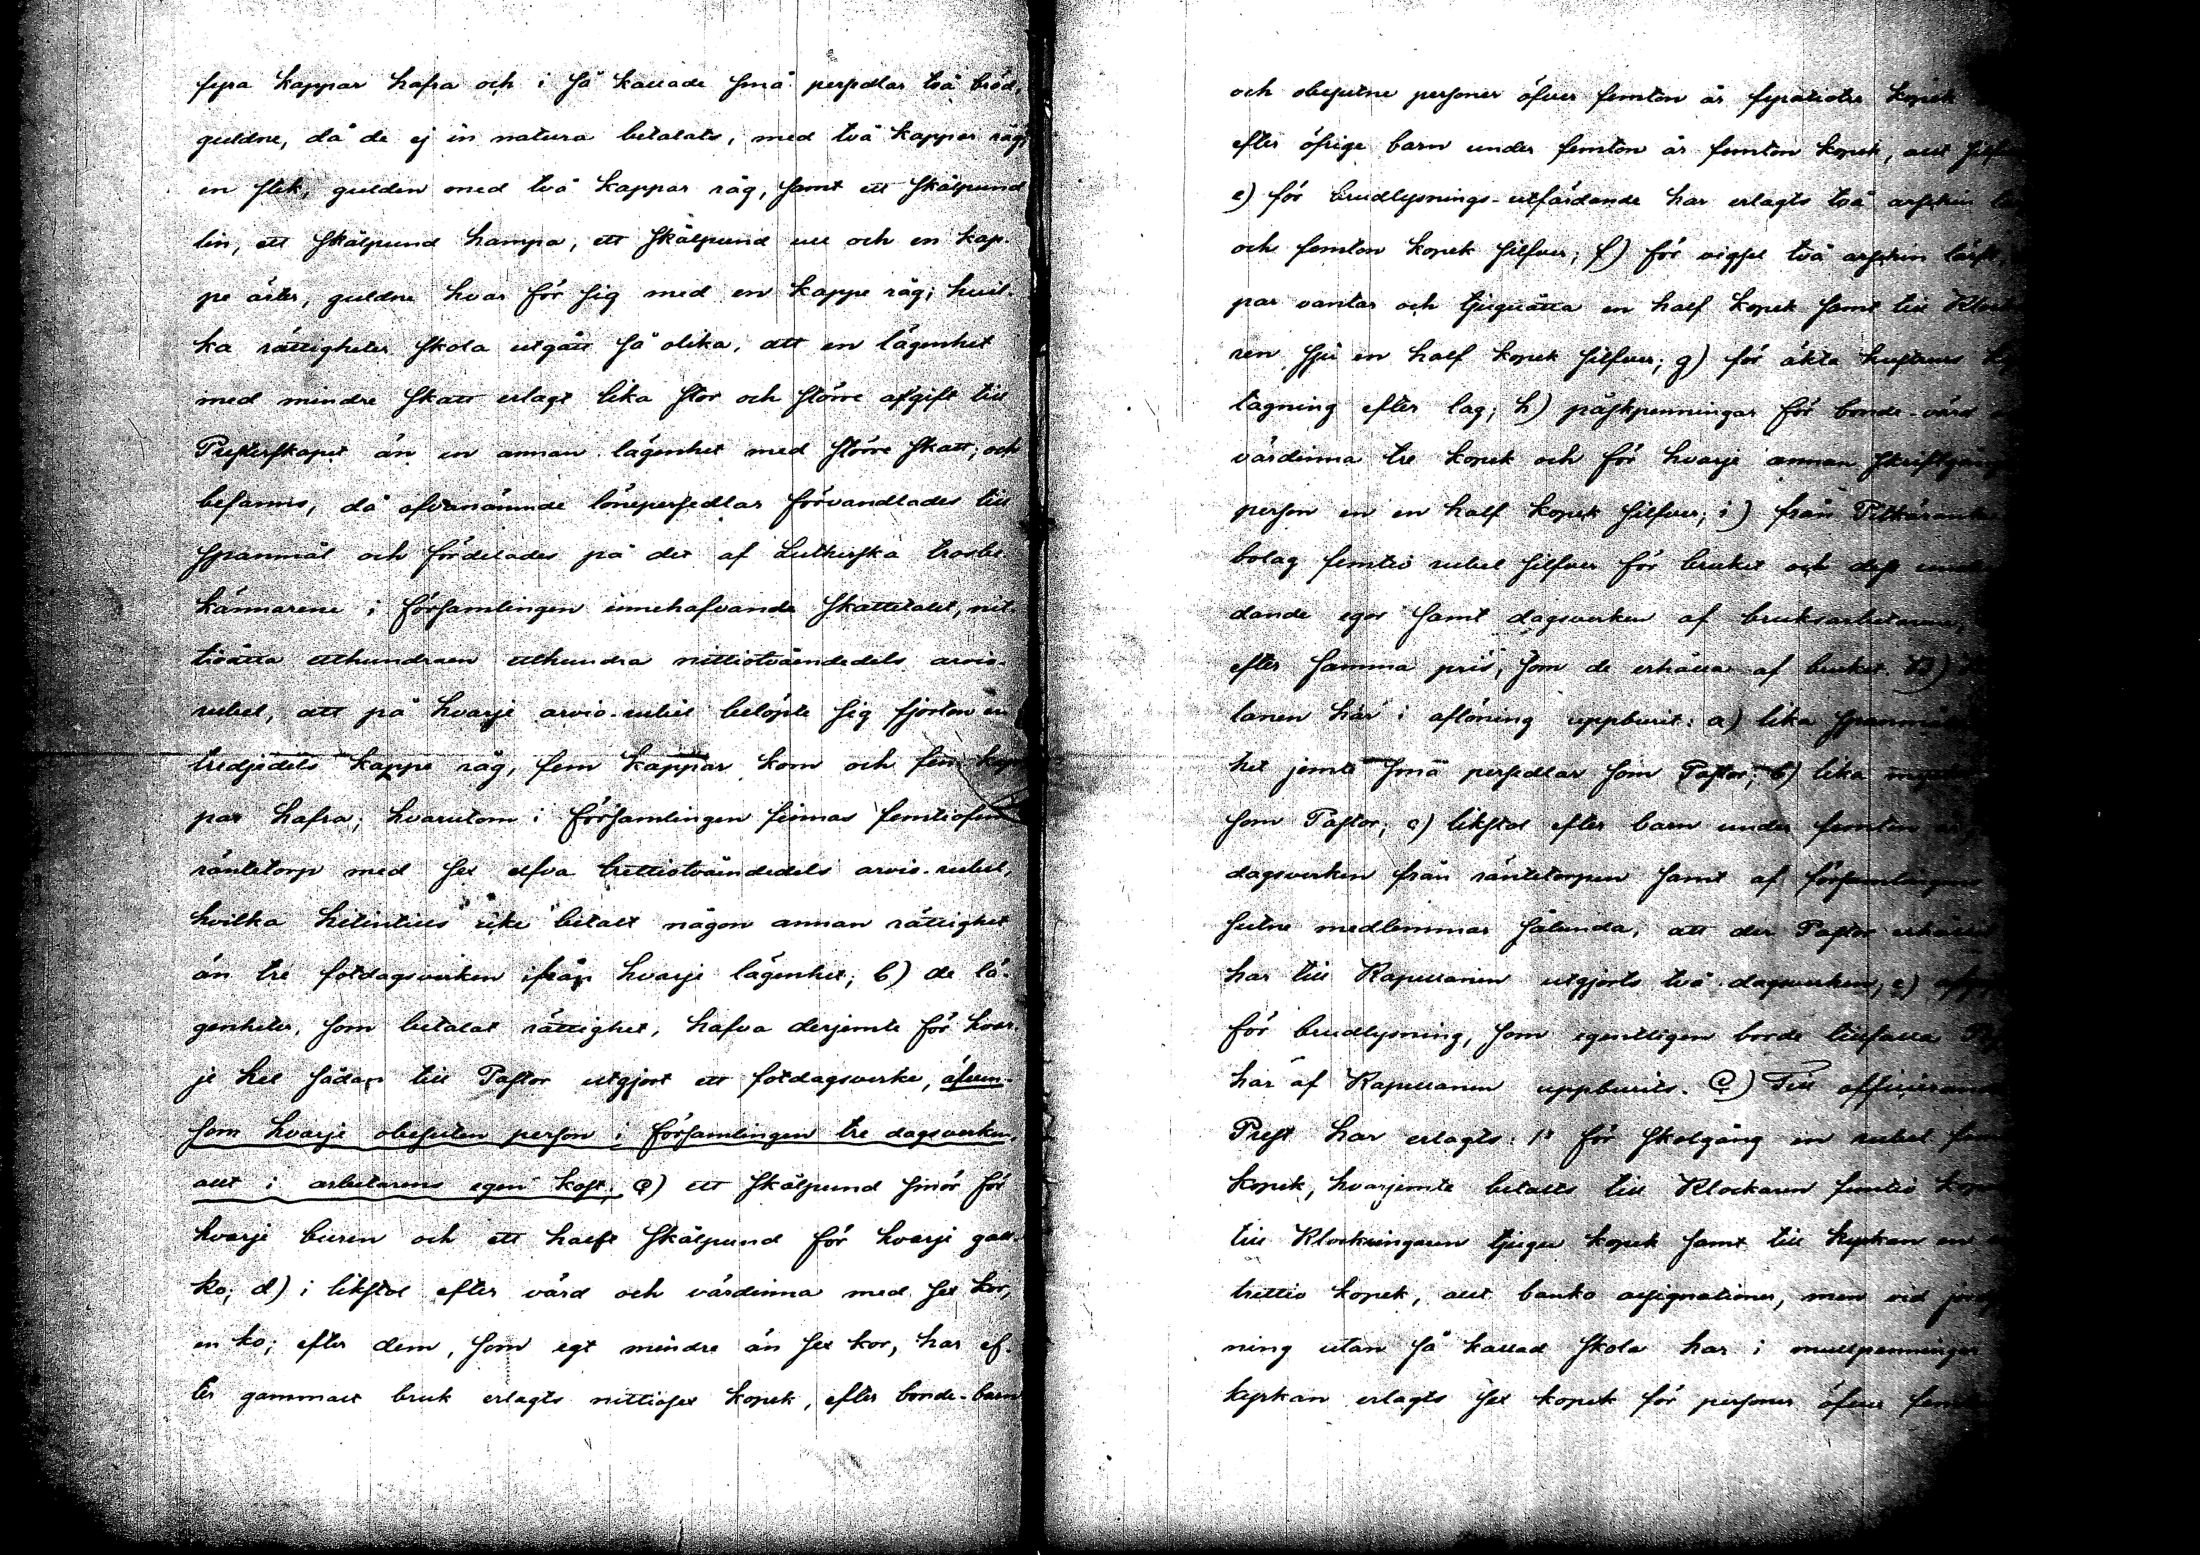 fyra kappar hafra och i så kallade små persedlar två bröd,
guldne, då de ej in natura betalats, med två kappar råg,
en stek, gulden med två kappar råg, samt ett skålpund
lin, ett skålpund hampa, ett skålpund ull och en kap-
pe ärter, guldne hvar för sig med en kappe råg; hvil-
ka rättigheter skola utgått så olika, att en lägenhet
med mindre skatt erlagt lika stor och större afgift till
Presterskapet än en annan lägenhet med större skatt; och
befanns, då ofvannämnde lönepersedlar förvandlades till
spanmål och fördelades på det af Lutherska trosbe-
kännarene i församlingen innehafvande skattetalet, nit-
tioåtta etthundraen etthundra nittiotvåendedels arvio-
rubel, att på hvarje arvio-rubel belöpte sig fjorton en
tredjedels kappe råg, fem kappar korn och fem kap-
par hafra; hvarutom i församlingen finnas femtiofem
räntetorp med sex elfva trettiotvåendedels arvio-rubel,
hvilka hitintills icke betalt någon annan rättighet
än tre fotdagsverken ifrån hvarje lägenhet; b) de lä-
genheter, som betalat rättighet, hafva derjemte för hvar-
je hel sådan till Pastor utgjort ett fotdagsverke, äfven-
som hvarje obesuten person i församlingen tre dagsverken,
allt i arbetarens egen kost; c) ett skålpund smör för
hvarje buren och ett halft skålpund för hvarje gall-
ko; d) i likstol efter värd och värdinna med sex kor,
en ko; efter dem, som egt mindre än sex kor, har ef-
ter gammalt bruk erlagts nittiosex kopek, efter bonde-barn
och obesutne personer öfver femton år fyratiotre kopek
efter öfrige barn under femton år femton kopek, allt
e) för brudlysnings-utfärdande har erlagts två arschin
och femton kopek silfver; f) för vigsel två arschin lärft,
par vantar och tjuguåtta en half kopek samt till
ren sju en half kopek silfver; g) för äkta hustrurs
tagning efter lag; h) påskpenningar för bonde-värd
värdinna tre kopek och för hvarje annan
person en en half kopek silfver; i) från Pitkäranta
bolag femtio rubel silfver för bruket och dess
dande egor samt dagsverken af bruksarbetarene,
efter samma pris, som de erhålla af bruket. B)
lanen har i aflöning uppburit: a) lika
het jemte små persedlar som Pastor; b) lika
som Pastor; c) likstol efter barn under femton år,
dagsverken från räntetorpen samt af församlingens
sutne medlemmar sålunda, att der Pastor erhållit
har till Kapellanen utgjorts två dagsverken; e)
för brudlysning, som egentligen borde tillfalla
har af Kapellanen uppburits. C) Till officierande
Prest har erlagts: 1º för skolgång en rubel
kopek, hvarjemte betalts till Klockaren femtio
till Klockringaren tjugu kopek samt till kyrkan en
trettio kopek, allt banko assignationer, men vid
ning utan så kallad skola har i mullpenningar
kyrkan erlagts sex kopek för personer öfver